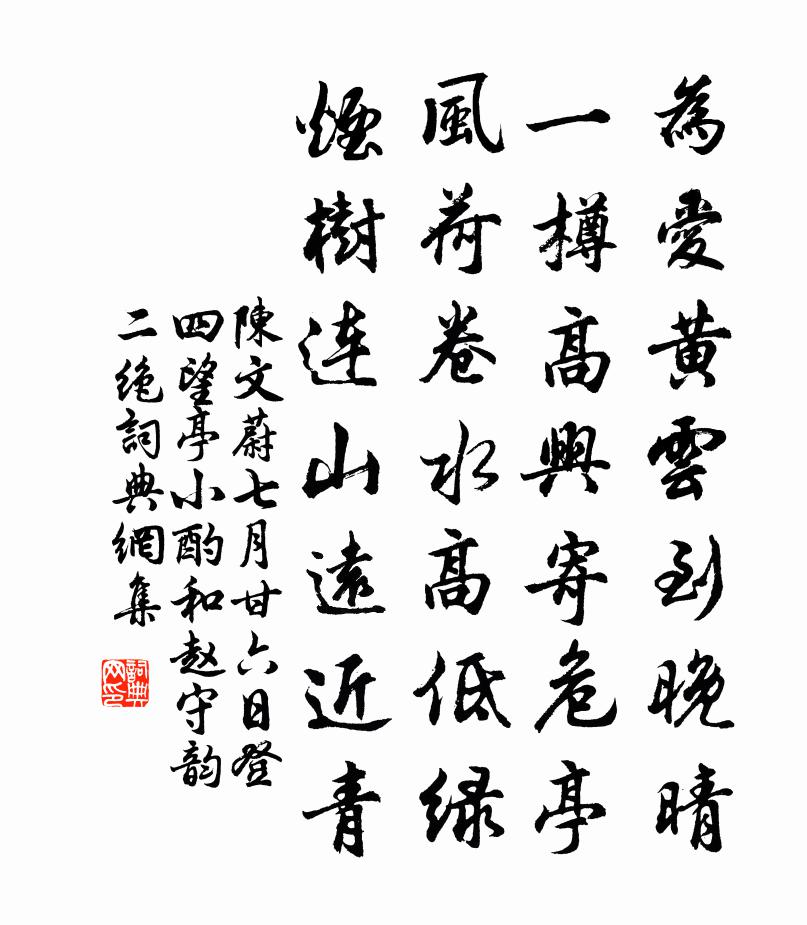 為愛黃雲到晚晴
一樽高興寄危亭
風荷卷水高低绿
煙樹连山遠近青
陳文蔚七月廿六日登
四望亭小酌和赵守韵
二绝詞典網集
詞典网印